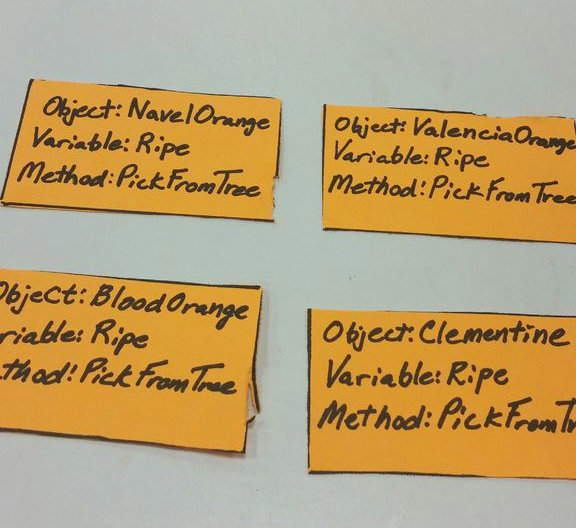 Object: Navel Orange
Variable: Ripe
Method: PickFromTree
Object: ValenciaOrange
Variable: Ripe
Method: PickFromTree
Object: Blood Orange
riable: Ripe
thod: PickFromTree
Object: Clementine
Variable: Ripe
Method: PickFromTr